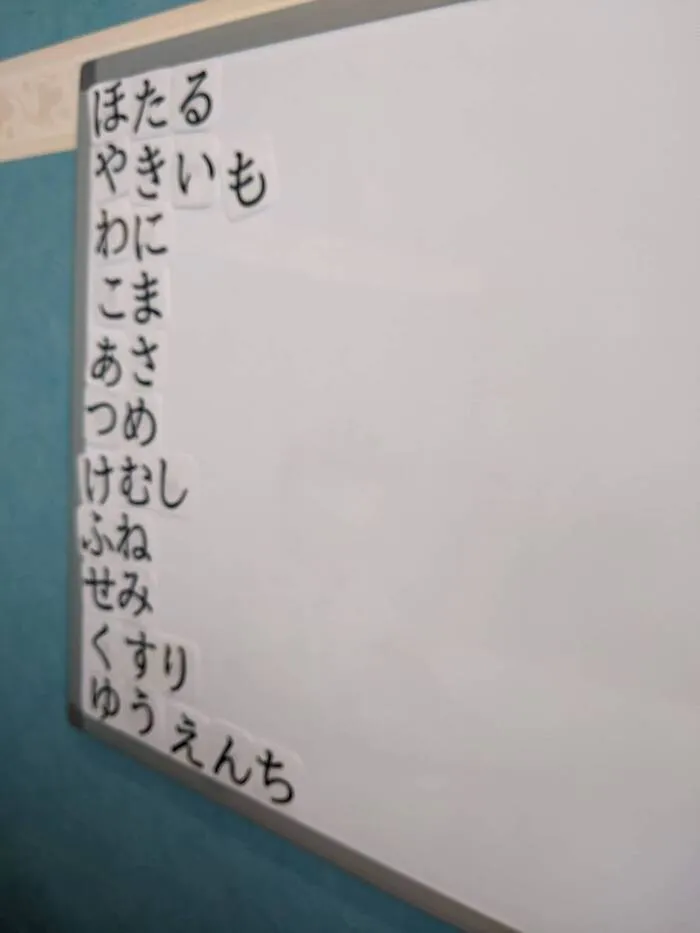 ほたる
やきいも
わに
こま
あさ
つめ
けむし
ふね
せみ
くすり
ゆうえんち